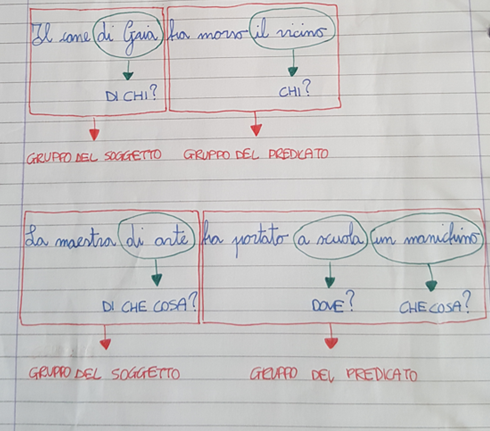 Il cane di Gaia ha morso il vicino
DI CHI? CHI?
GRUPPO DEL SOGGETTO GRUPPO DEL PREDICATO
La maestra di arte ha portato a scuola un manichino
DI CHE COSA? DOVE? CHE COSA?
GRUPPO DEL SOGGETTO GRUPPO DEL PREDICATO